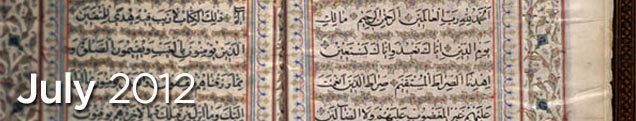 الحمد لله رب العالمين الرحمن الرحيم مالك
يوم الدين اياك نعبد واياك نستعين
اهدنا الصراط المستقيم صراط الذين انعمت
عليهم غير المغضوب عليهم ولا الضالين
ذلك الكتاب لا ريب فيه هدى للمتقين
الذين يؤمنون بالغيب ويقيمون الصلوة
ومما رزقناهم
اليك وما انزل من
July 2012